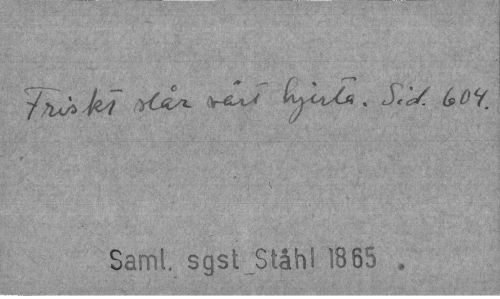 Friskt slår vårt hjerta. Sid. 604.
Saml. sgst Ståhl 1865.